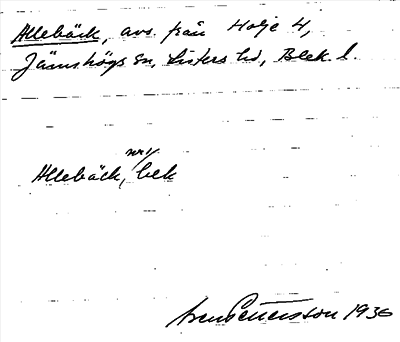 Allebäck, avs. från Holje 4,
Jämshögs sn, Listers hd, Blek. l.
Allebäck, bek
Pettersson 1936